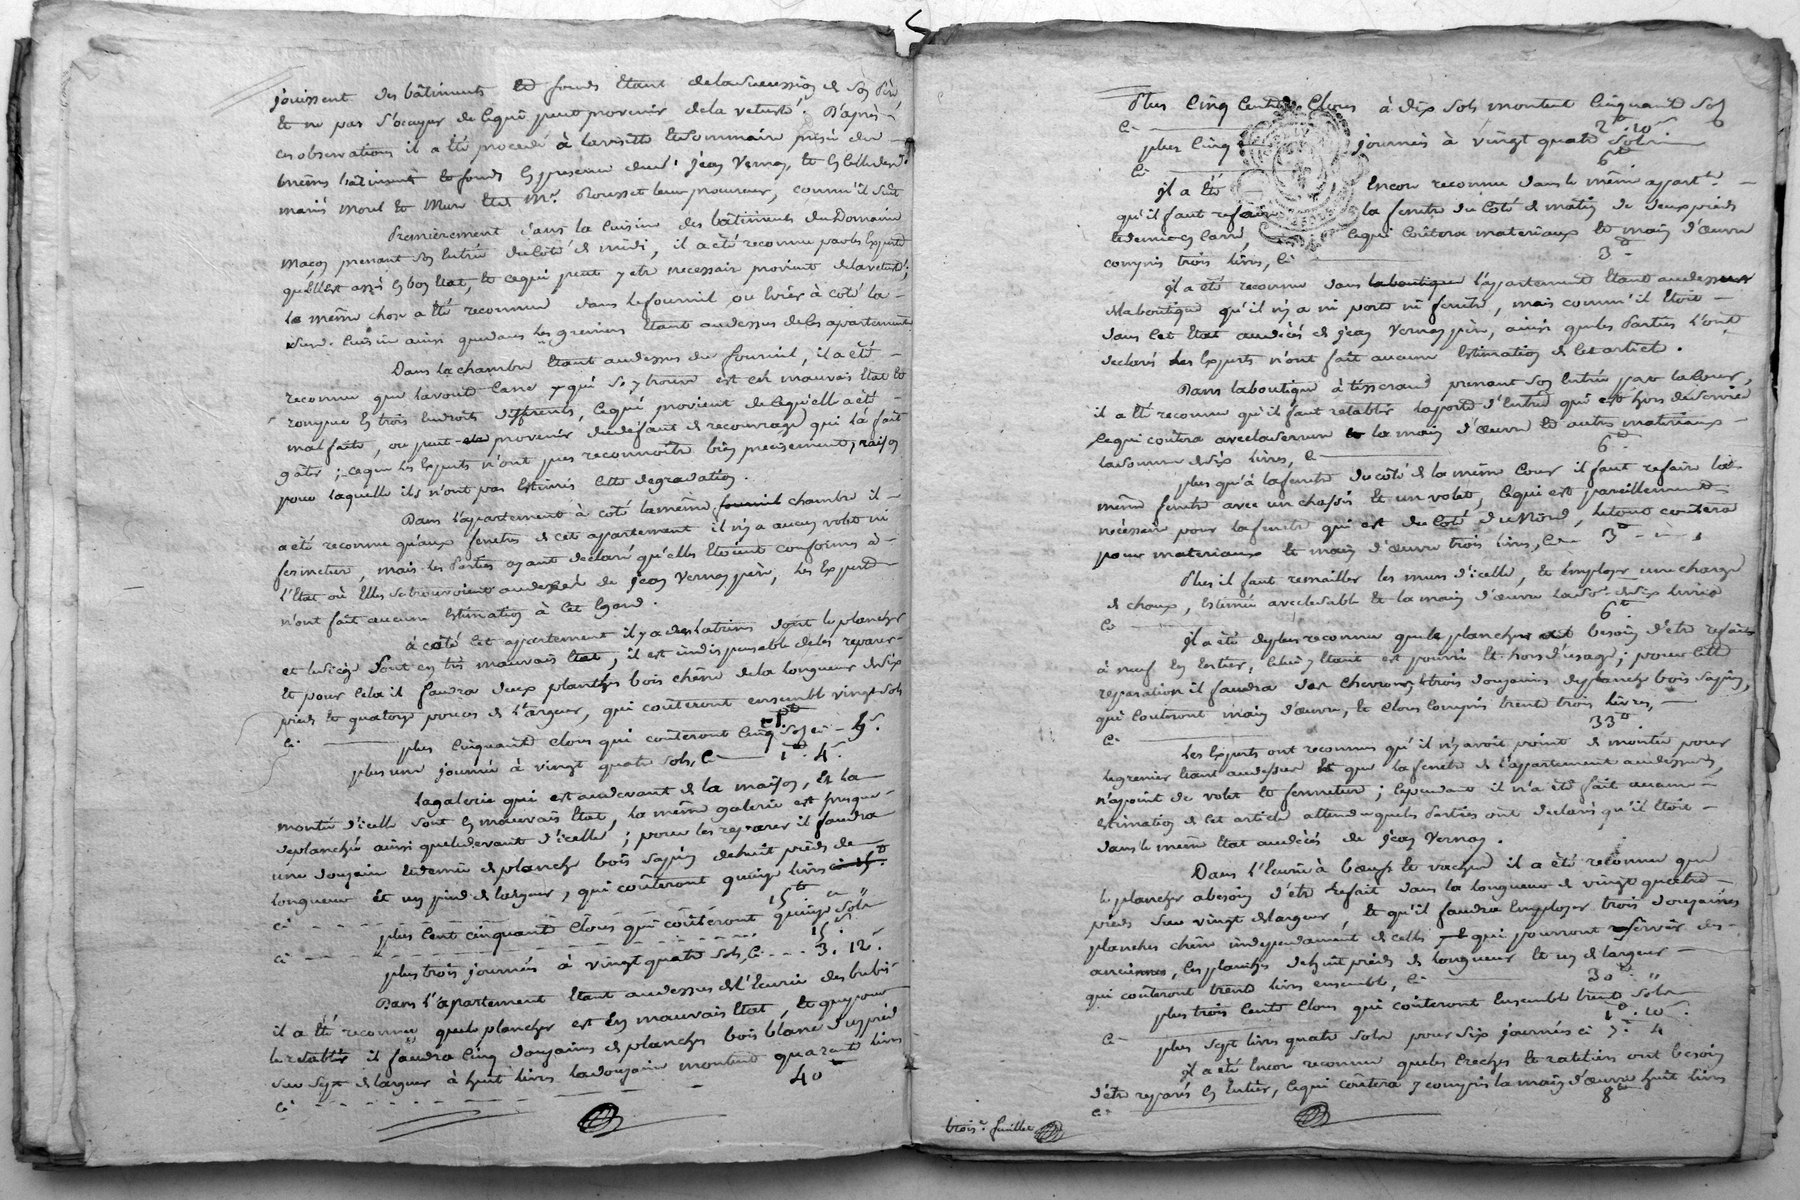 jouissent des bâtiments et fonds étant de la succession de son Père,
et ne pas s'ocuper de ce qui peut provenir de la vetusté, D'après
ces observations il a été procédé à la visitte et sommaire prisée des
mêmes bâtiments et fonds en presence dud. sr. jean Vernay, et
mariés Morel et Mr. Rousset leur procureur, comm'il suit
Premierement dans la cuisine des bâtiments du Domaine
Maçon prenant son entrée du coté de midi, il a été reconnu par les Experts
qu'elle est assés en bon état, et ce qui peut y etre necessaire provient de la vetusté;
la même chose a été reconnue dans le fournil ou evier à coté la
susd. cuisine ainsi que dans les greniers étant au dessus de les appartements
Dans la chambre étant au dessus du fournil, il a été
reconnu que la voute carré y qui s'y trouve est en mauvais état et
rompue en trois endroits differents, ce qui provient de ce qu'elle a été
mal faite, ou peut provenir du défaut de recouvrage qui l'a fait
gâter; ce que les Experts n'ont pas reconnoître bien precisement, raison
pour laquelle ils n'ont pas estimés cette degradation.
Dans l'appartement à coté la même fournil chambre il
a été reconnu qu'aux fenetres de cet appartement il n'y a aucun volet ni
fermeture, mais les Parties ayant declaré qu'elles étoient conformes à
l'état où elles se trouvoient au decès de jean Vernay père, les Experts
n'ont fait aucune estimation à cet egard.
à coté cet appartement il y a des latrines dont le plancher
et le siège sont en très mauvais état; il est indispensable de les reparer
et pour cela il faudra deux planches bois chêne de la longueur de six
pieds et quatorze pouces de largeur, qui couteront ensemble vingt sols
ci 1#
plus cinquante clous qui couteront cinq sols ci - 5s.
plus une journée à vingt quatre sols, ci 1# 4s.
La galerie qui est au devant de la maison, et la
montée d'icelle sont en mauvais état, la même galerie est presque
deplanchée ainsi que le devant d'icelle; pour les reparer il faudra
une douzaine et demie de planches bois sapin de huit pieds de
longueur et un pied de largeur, qui coûteront quinze livres ci 15#
ci 15# "
plus cent cinquante clous qui coûteront quinze sols
ci 15s.
plus trois journées à vingt quatre sols, ci 3. 12s.
Dans l'apartement étant au dessus de l'Ecurie des brebis
il a été reconnu que le plancher est en mauvais état, et que pour
le retablir il faudra cinq douzaines de planches bois blanc d'un pied
sur sept de largeur à huit livres la douzaine montent quarante livres
ci 40#
Plus cinq cents clous à dix sols montent cinquante sols
ci 2# 10s
plus cinq journées à vingt quatre sols
ci 6#
Il a été encore reconnu dans le même appartt.
qu'il faut refaire la fenetre du coté de matin de deux pieds
et demi en carré, ce qui coûtera materiaux et main d'œuvre
compris trois livres, ci 3#
Il a été reconnu dans la boutique l'appartement étant au dessus
de la boutique qu'il n'y a ni porte ni fenetre, mais comm'il étoit
dans cet état au décès de jean Vernay père, ainsi que les Parties l'ont
declaré les Experts n'ont fait aucune estimation de cet article.
Dans la boutique à tisserand prenant son entrée par la Cour,
il a été reconnu qu'il faut retablir la porte d'entrée qui est hors de service
ce qui coûtera avec la serrure et la main d'œuvre et autres materiaux
la somme de six livres, ci 6#
plus qu'à la fenetre du côté de la même Cour il faut refaire la
même fenetre avec un chassis et un volet, ce qui est pareillement
nécessaire pour la fenetre qui est du côté du Nord, le tout coutera
pour materiaux et main d'œuvre trois livres, ci 3
Plus il faut remailler les murs d'icelle, et employer une charge
de chaux, estimée avec le sable et la main d'œuvre la so. de six livres
ci 6#
Il a été de plus reconnu que le plancher a besoin d'etre refait
à neuf en entier, celui y étant est pourri et hors d'usage; pour cette
reparation il faudra des chevrons et trois douzaines de planches bois sapin,
qui couteront main d'œuvre, et clous compris trente trois livres,
ci 33#
Les Experts ont reconnus qu'il n'y avoit point de montée pour
le grenier étant au dessus et que la fenetre de l'appartement au dessous,
n'a point de volet et fermeture; cependant il n'a été fait aucune
estimation de cet article attendu que les Parties ont declaré qu'il étoit
dans le même état au décès de jean Vernay.
Dans l'Ecurie à bœufs et vaches il a été reconnu que
le plancher a besoin d'etre refait dans la longueur de vingt quatre
pieds sur vingt de largeur, et qu'il faudra employer trois douzaines
planches chêne independament de celles qui pourront servir des
anciennes, les planches de huit pieds de longueur et un de largeur
qui coûteront trente livres ensemble, ci 30# "
plus trois cents clous qui coûteront ensemble trente sols
ci 1# 10s.
plus sept livres quatre sols pour six journées ci 7# 4
Il a été encore reconnu que les creches et rateliers ont besoin
d'etre reparés en entier, ce qui coûtera y compris la main d'œuvre huit livres
ci 8#
trois.e feuillet